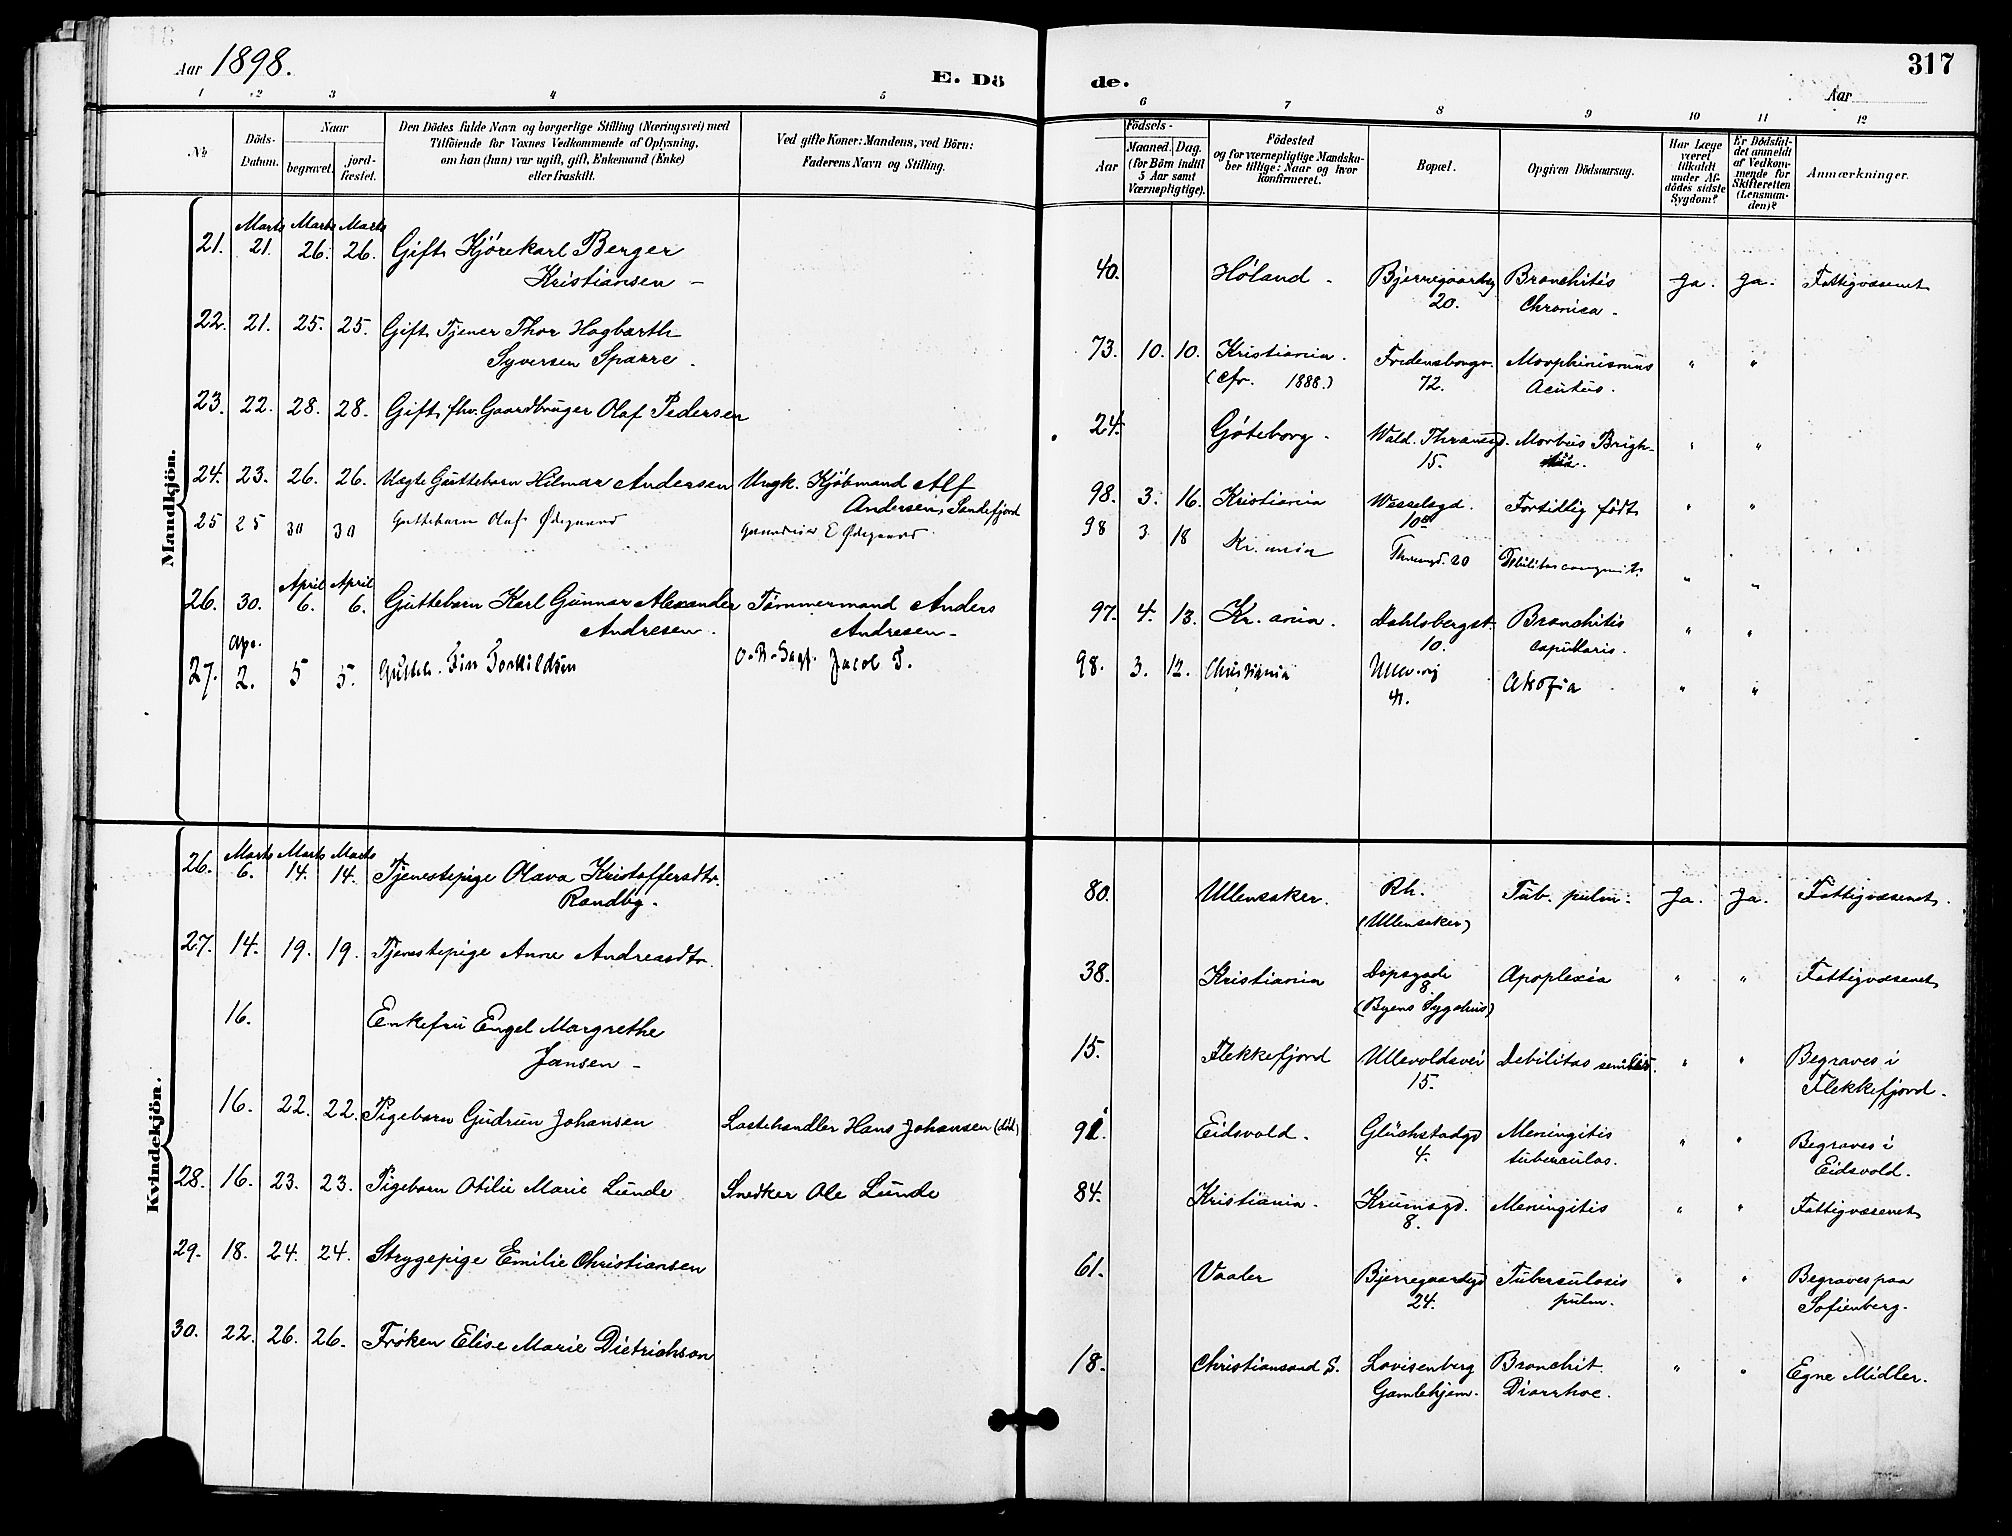 Aar 1898.
E. Dö
de.
317
Aar
1 2 3 4 5 6 7 8 9 10 11 12
No
Döds-Datum.
Naar
begravet.
jord-fæstet.
Den Dödes fulde Navn og borgerlige Stilling (Næringsvei) med
Tilföiende for Voxnes Vedkommende af Oplysning,
om han (hun) var ugift, gift, Enkemand (Enke)
eller fraskilt.
Ved gifte Koner: Mandens, ved Börn:
Faderens Navn og Stilling.
Födsels-
Aar
Maaned. Dag.
(for Börn indtil
5 Aar samt
Værnepligtige).
Födested
og for værnepligtige Mandska-
ber tillige: Naar og hvor
konfirmeret.
Bopæl.
Opgiven Dödsaarsag.
Har Læge
været
tilkaldt
under Af-
dödes sidste
Sygdom?
Er Dödsfal-
det anmeldt
af Vedkom-
mende for
Skifteretten
(Lensman-
den)?
Anmærkninger.
Mandkjön.
Marts Marts Marts
21. 21. 26. 26. Gift, Kjørekarl Berger 40. Høland - Bjerregaardsg Bronchitis Ja. Ja. Fattigvæsenet
Kristiansen - 20. Chronica.
22. 21. 25. 25. Gift, Tjener Thor Hagbarth 73. 10. 10. Kristiania. Fredensborgv. Morphinismus " "
Syversen Sparre. (cfr. 1888.) 72. Acutus.
23. 22. 28. 28. Gift, fhv. Gaardbruger Olaf Pedersen 24. Göteborg - Wald. Thranesgd. Morbus Brigh- " "
15.
24. 23. 26. 26. Uægte Guttebarn Hilmar Andersen Ungk. Kjøbmand Alf 98. 3. 16. Kristiania Wesselsgd. Fortidlig født " "
Andersen, Sandefjord
25 25 30 30 Guttebarn Olaf Ødegaard E Ødegaard 98 3 18 Kr. ania Thrangd. 20 Debilitas congenit. " "
April April
26. 30. 6. 6. Guttebarn Karl Gunnar Alexander Tømmermand Anders 97. 4. 13. Kr. ania. Dahlsbergst. Bronchitis " "
Andresen. Andresen - 10. capillaris.
Apr.
27. 2. 5 5. Gutteb. Finn Torkildsen Jacob T. 98. 3. 12. Christiania Ullev.vej " "
Kvindekjön.
Marts Marts Marts
26. 6. 14. 14. Tjenestepige Olava Kristoffersdtr. 80. Ullensaker. Rh. Tub. pulm. Ja. Ja. Fattigvæsenet.
Randby. (Ullensaker)
27. 14. 19. 19. Tjenestepige Anne Andreasdtr. 38. Kristiania Dopsgade Apoplexia " " Fattigvæsenet
8
(Byens Sygehus)
16. Enkefru Engel Margrethe 15. Flekkefjord Ullevoldsvei Debilitas senilis. " " Begraves i
Jansen - 15. Flekkefjord.
16. 22. 22. Pigebarn Gudrun Johansen Lastehandler Hans Johansen (død) Eidsvold. Glückstadgd Meningitis " " Begraves i
4. tuberculos. Eidsvold.
28. 16. 23. 23. Pigebarn Otilie Marie Lunde Snedker Ole Lunde 84. Kristiania. Krumsgd. Meningitis " " Fattigvæsenet
8.
29. 18. 24. 24. Strygepige Emilie Christiansen 61. Vaaler Bjerregaardsgd Tuberculosis " " Begraves paa
24. pulm. Sofienberg.
30. 22. 26. 26. Frøken Elise Marie Dietrichson 18. Christiansand S. Lovisenberg Bronchit. " " Egne Midler.
Gamlehjem. Diarrhoe.